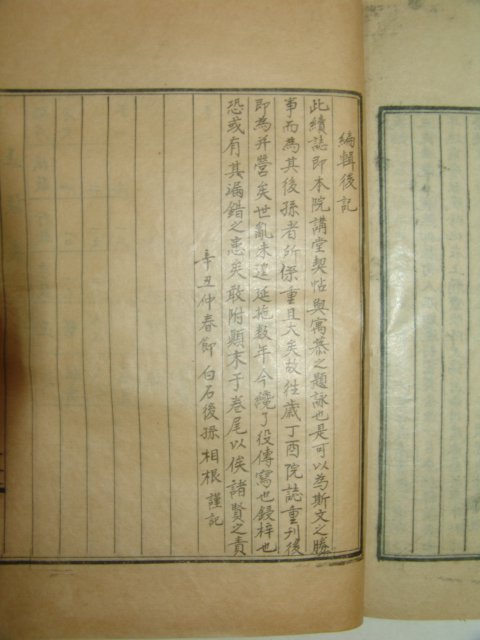 編輯後記
此續誌即本院講堂契帖與寓慕之題詠也是可以為斯文之勝
事而為其後孫者所係重且大矣故往歲丁酉院誌重刊後
即為幷營矣世亂未遑延拖數年今纔了役傳寫也鋟梓也
恐或有其漏錯之患矣敢附顚末于卷尾以俟諸賢之責
辛丑仲春節 白石後孫相根 謹記